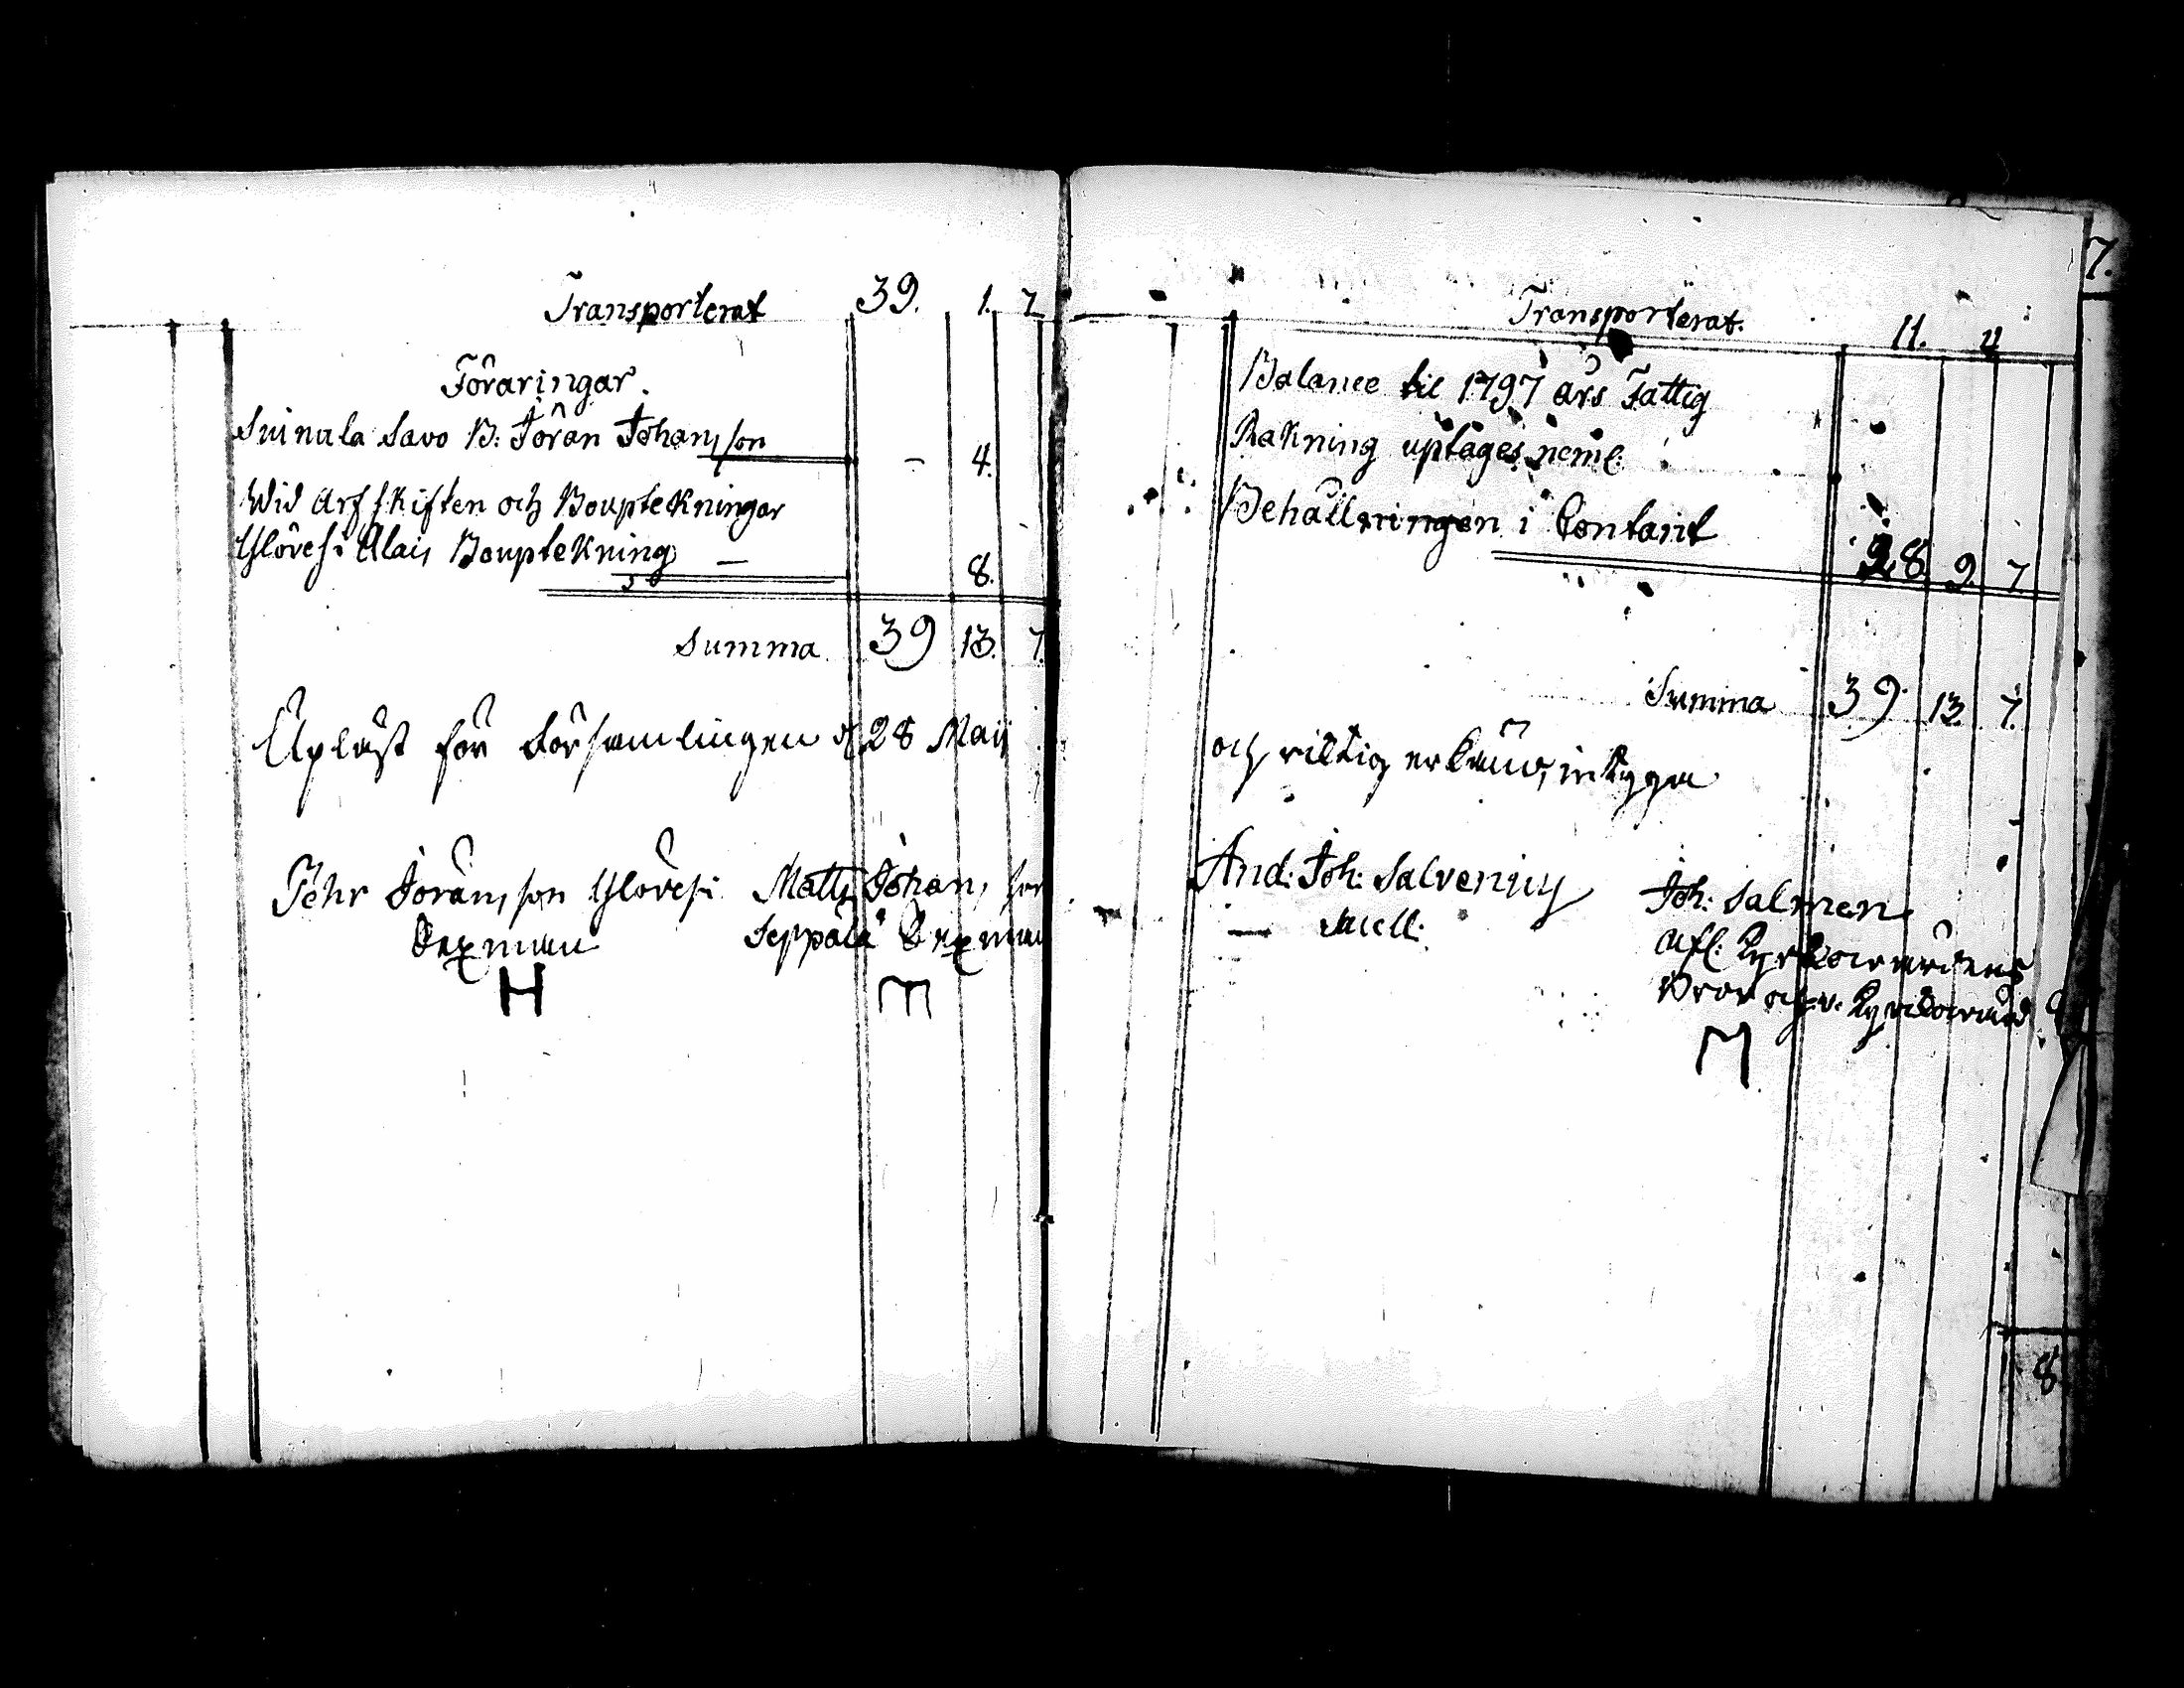 Transporterat 39. 1. 7
Föraringar.
Suinula Savo B: Jöran Johansson - 4.
Wid Arfskiften och Boupteckningar
Ylöves: Alais Bouptekning — 8.
Summa 39 13. 7.
Upläst för Församlingen d 28 Maii
Pehr Jöransson Ylöves: Matts Johansson
Sexman Seppälä Sexman
H m
7.
Transporterat. 11. 4
Balance til 1797 års Fattig
Räkning uptages neml:
Behållningen i Contant 28 9 7.
Summa 39. 13. 7.
och riktig erkänd, intyga
And: Joh: Salvenius Joh: Salmen
— Sacell: Afl: Kyrkowärdens
Bror och v. Kyrkowärd
M
8